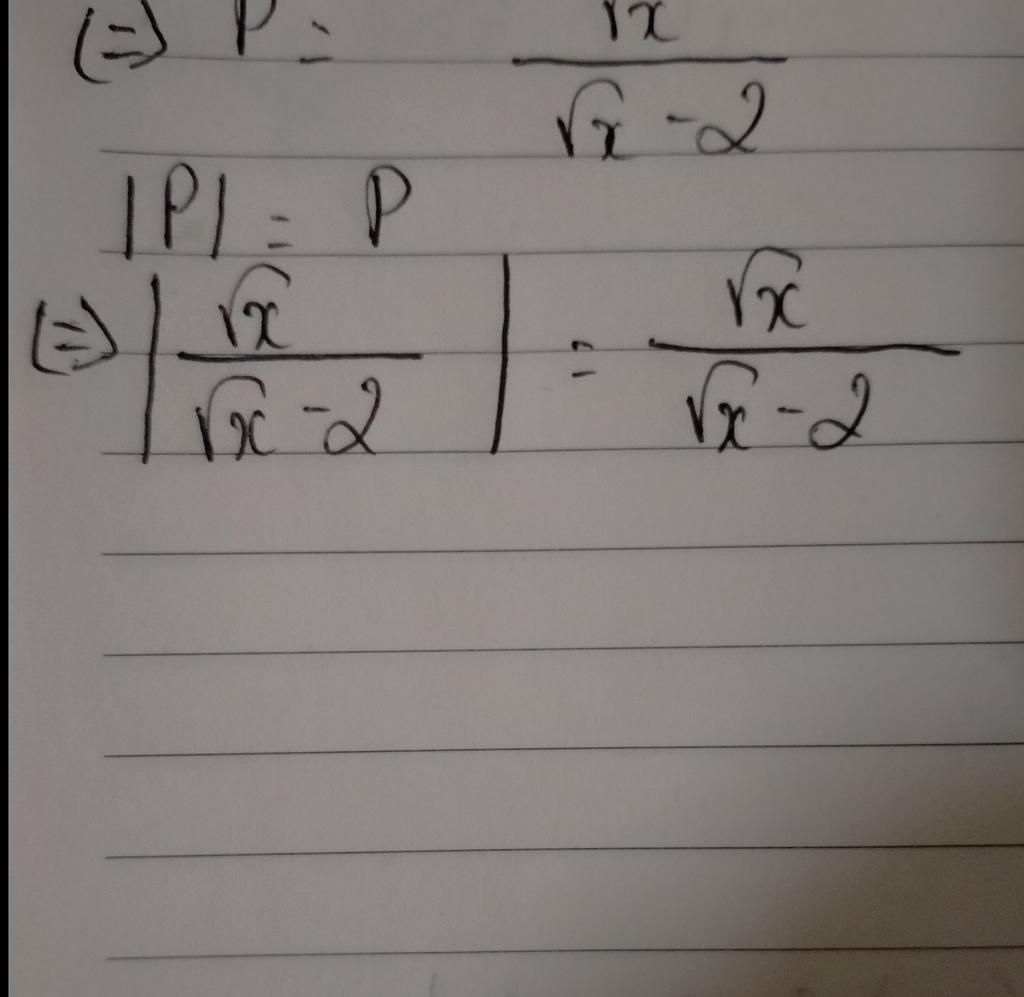 (=) P = √x / √x - 2
|P| = P
(=) | √x / √x - 2 | = √x / √x - 2